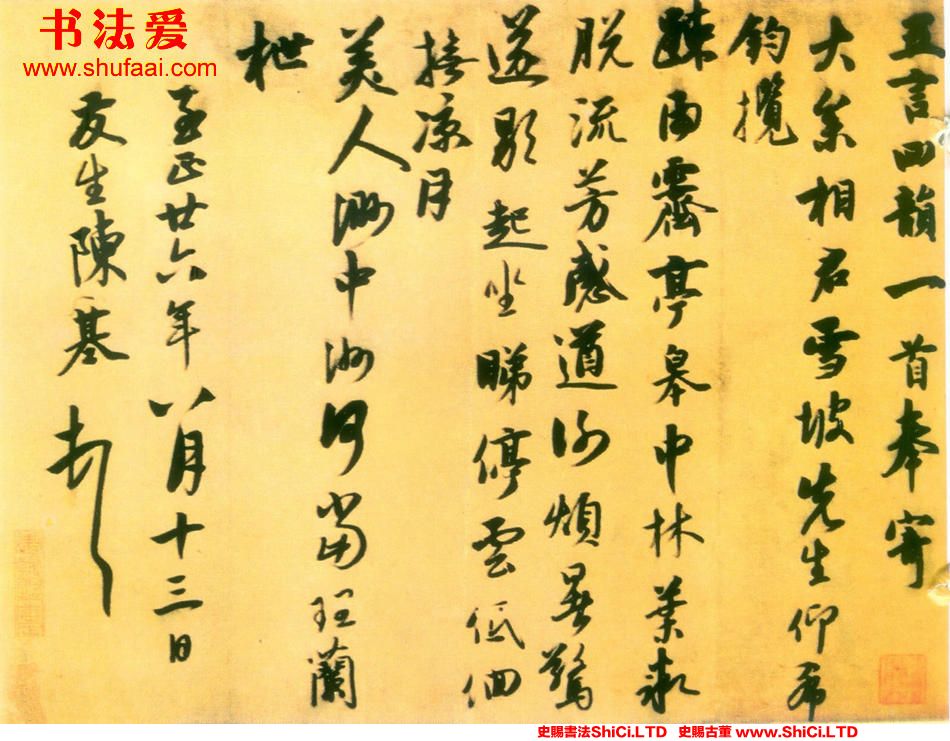 书法爱
www.shufaai.com
五言四韻一首奉寄
大參相君雪坡先生仰希
鈞攬
疎雨霽亭皋中林葉
脱流芳感遒謝煩暑驚
遂歇起坐睇停雲低佪
涼月
美人渺中洲何當理蘭
枻
至正廿六年八月十三日
友生陳基
史賜書法ShiCi.LTD 史賜古董 www.ShiCi.LTD